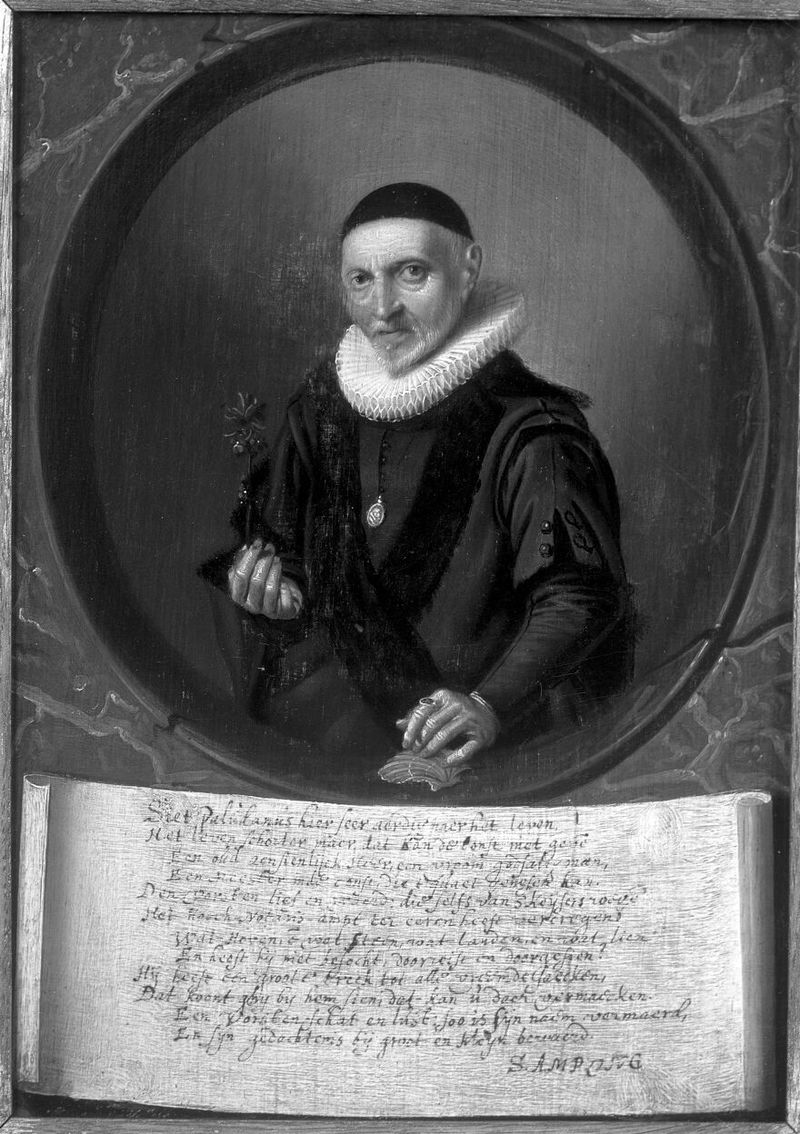 Siet Paludanus hier seer aerdig naer het leven,
Het leven schorter maer, dat kan de konst niet geve
Een oud aensienlijck Heer, een vroom godsalig man,
Een meester die t quaet genesen kan.
Den Vorsten lief en waerd, die selfs van 's keysers
Het hooch ampt ter eeren heeft vercregen
Wat wat Steen, wat landen, en wat lien
En heeft hij niet besocht, doorreist en doorgesien
Hij heeft een groote treck tot alle vremde saecken,
Dat koont ghy by hem sien, dat kan u doch vermaecken.
Een Vorsten schat en lust, soo is sijn naem vermaerd,
En sijn gedachtenis by groot en kleyn bewaerd.
S. AMPSING